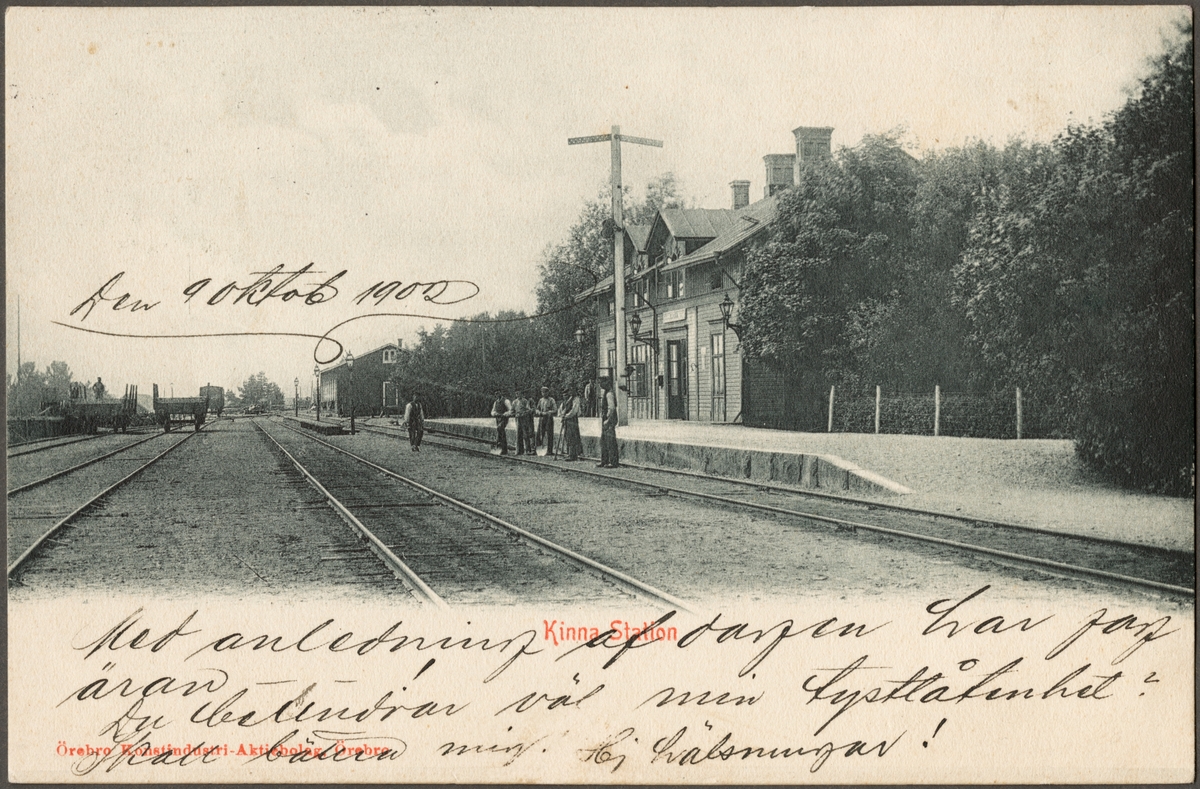 Den 9 oktob 1902
Kinna Station
Med anledning af dagen har jag
äran – – !
Du beundrar väl min tystlåtenhet?
Örebro Konstindustri-Aktiebolag, Örebro
Skall bättra mig! Hj hälsningar!